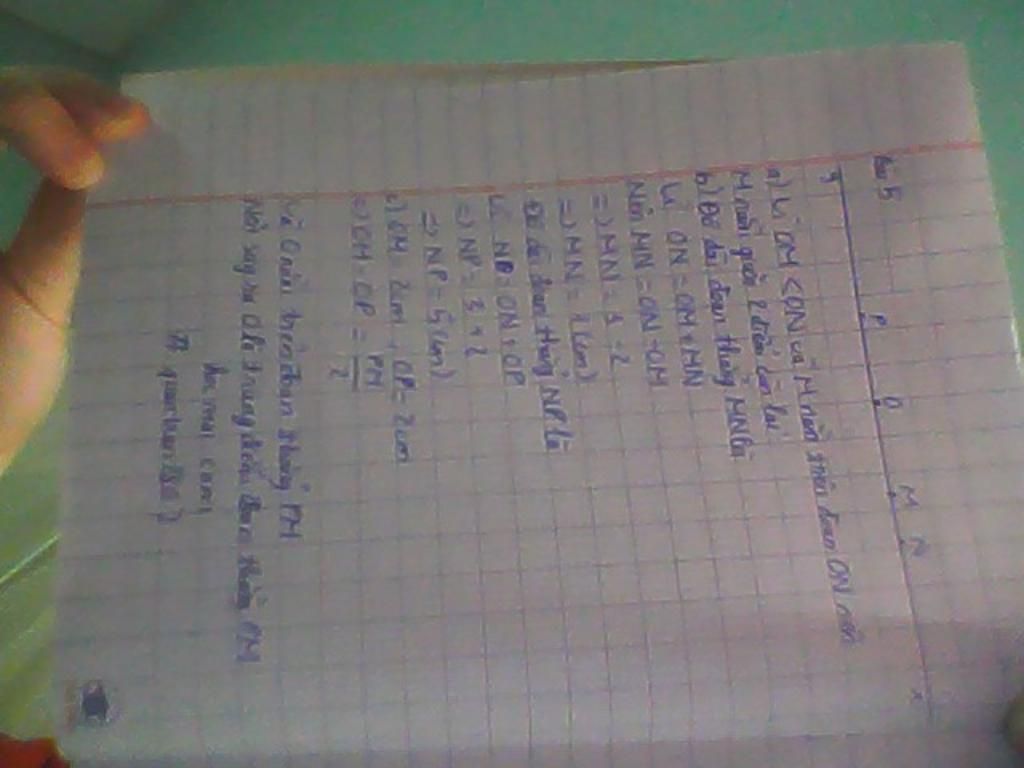 Bài 5
y P O M N x
a) Vì OM < ON và M nằm trên đoạn ON nên
M nằm giữa 2 điểm còn lại
b) Độ dài đoạn thẳng MN là
Vì ON = OM + MN
Nên MN = ON - OM
=> MN = 3 - 2
=> MN = 1 (cm)
Độ dài đoạn thẳng NP là
Vì NP = ON + OP
=> NP = 3 + 2
=> NP = 5 (cm)
c) OM = 2cm, OP = 2cm
=> OM = OP = PM/2
Và O nằm trên đoạn thẳng PM
Nên suy ra O là trung điểm đoạn thẳng PM